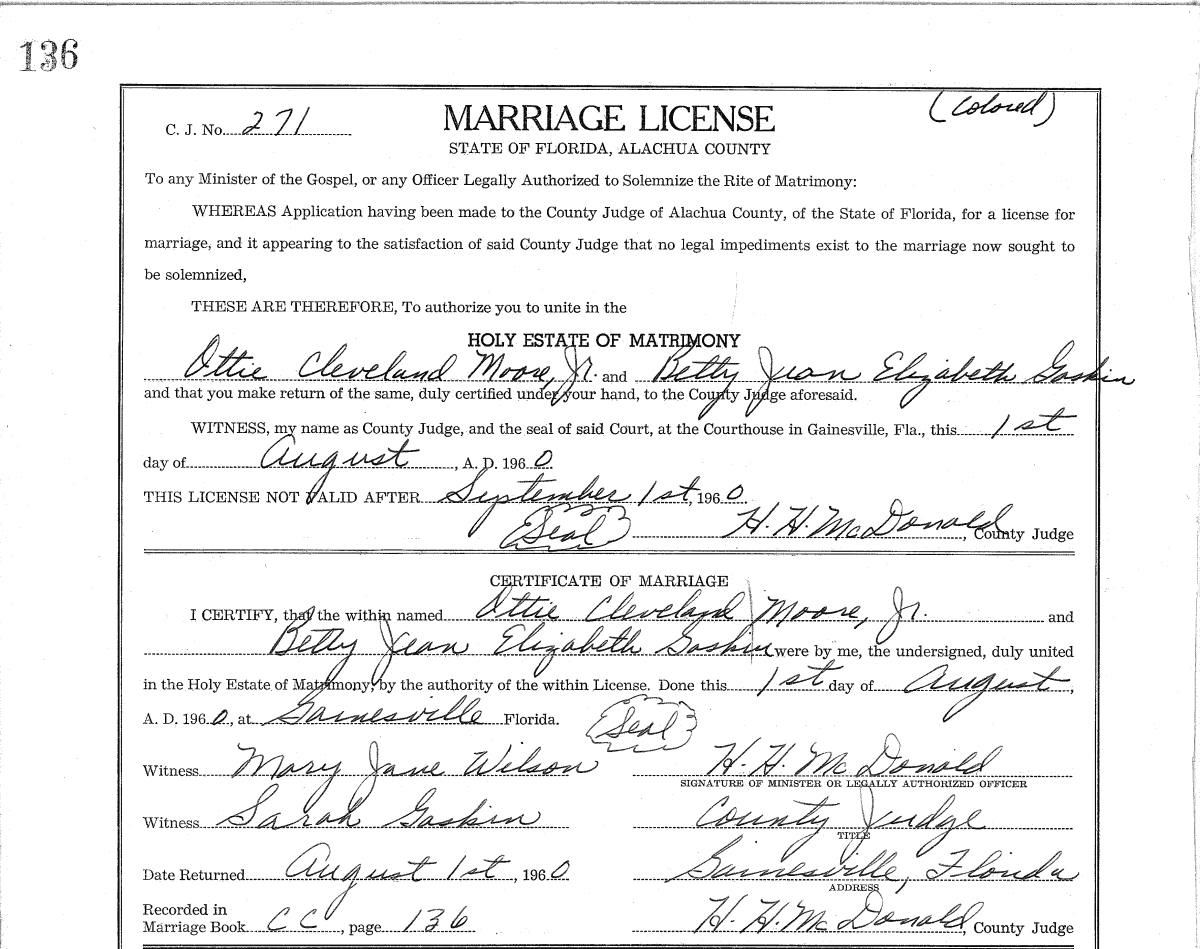 136
(Colored)
C. J. No. 271
MARRIAGE LICENSE
STATE OF FLORIDA, ALACHUA COUNTY
To any Minister of the Gospel, or any Officer Legally Authorized to Solemnize the Rite of Matrimony:
WHEREAS Application having been made to the County Judge of Alachua County, of the State of Florida, for a license for
marriage, and it appearing to the satisfaction of said County Judge that no legal impediments exist to the marriage now sought to
be solemnized,
THESE ARE THEREFORE, To authorize you to unite in the
HOLY ESTATE OF MATRIMONY
Ottie Cleveland Moore, Jr. and Betty Jean Elizabeth Gaskin
and that you make return of the same, duly certified under your hand, to the County Judge aforesaid.
WITNESS, my name as County Judge, and the seal of said Court, at the Courthouse in Gainesville, Fla., this 1st
day of August, A. D. 1960.
THIS LICENSE NOT VALID AFTER September 1st, 1960.
(Seal) H. H. McDonald, County Judge
CERTIFICATE OF MARRIAGE
I CERTIFY, that the within named Ottie Cleveland Moore, Jr. and
Betty Jean Elizabeth Gaskin were by me, the undersigned, duly united
in the Holy Estate of Matrimony, by the authority of the within License. Done this 1st day of August,
A. D. 1960, at Gainesville Florida. (Seal)
Witness Mary Jane Wilson H. H. McDonald
SIGNATURE OF MINISTER OR LEGALLY AUTHORIZED OFFICER
Witness Sarah Gaskin County Judge
TITLE
Date Returned August 1st, 1960 Gainesville, Florida
ADDRESS
Recorded in
Marriage Book CC, page 136 H. H. McDonald, County Judge